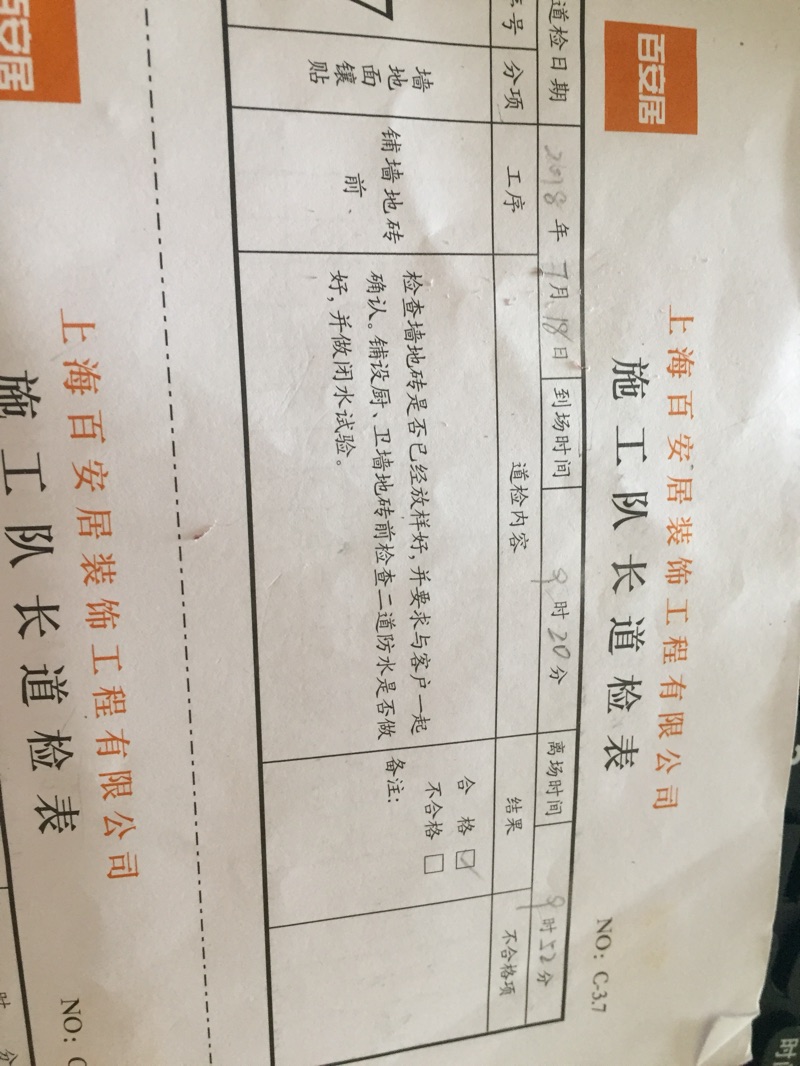 百安居
上海百安居装饰工程有限公司
施工队长道检表
NO: C-3.7
道检日期 2018年7月18日 到场时间 9时20分 离场时间 9时52分
号 分项 工序 道检内容 结果 不合格项
7
墙
地
面
镶
贴
铺墙地砖
前、
检查墙地砖是否已经放样好,并要求与客户一起
确认。铺设厨、卫墙地砖前检查二道防水是否做
好,并做闭水试验。
合格 ☑
不合格 □
备注:
百安居
上海百安居装饰工程有限公司
施工队长道检表
NO:
时 分
时